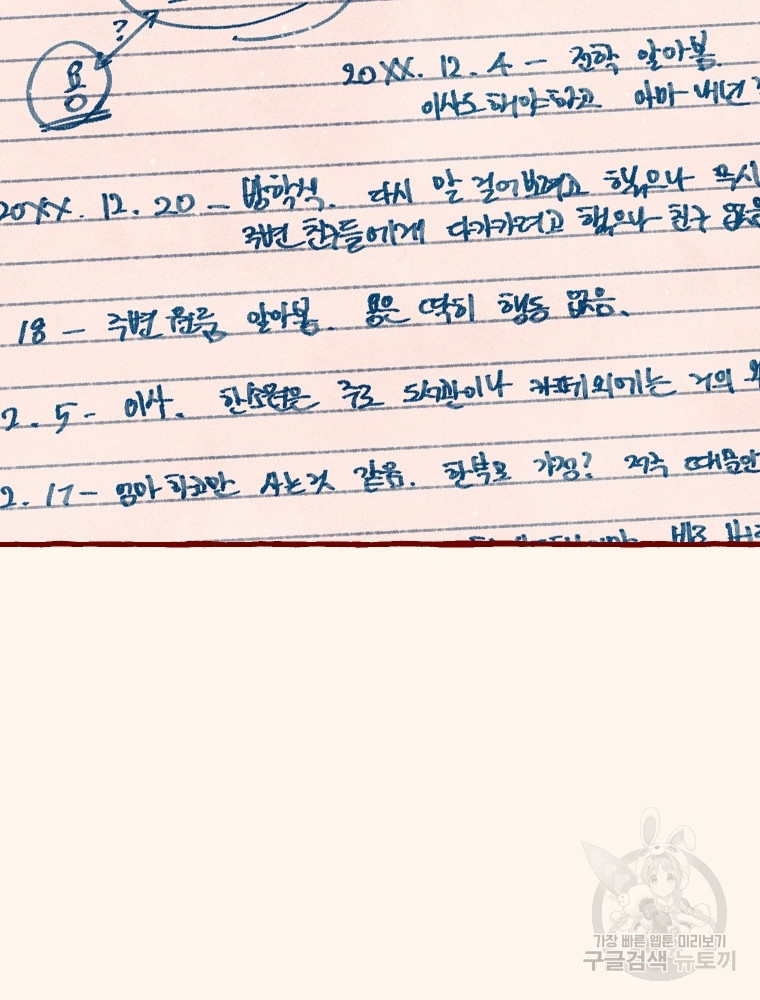 ?
용
20XX. 12. 4 - 전학 알아봄
이사도 해야하고 아마 내년
20XX. 12. 20 - 방학식. 다시 말 걸어보려고 했으나 무시
주변 친구들에게 다가가려고 했으나 친구 없음
18 - 주변 원룸 알아봄. 용은 딱히 행동 없음.
2. 5 - 이사. 한소령은 주로 도서관이나 카페 외에는 거의
2. 17 - 엄마하고만 사는 것 같음. 한부모 가정? 저주 때문인
바로
가장 빠른 웹툰 미리보기
구글검색 뉴토끼